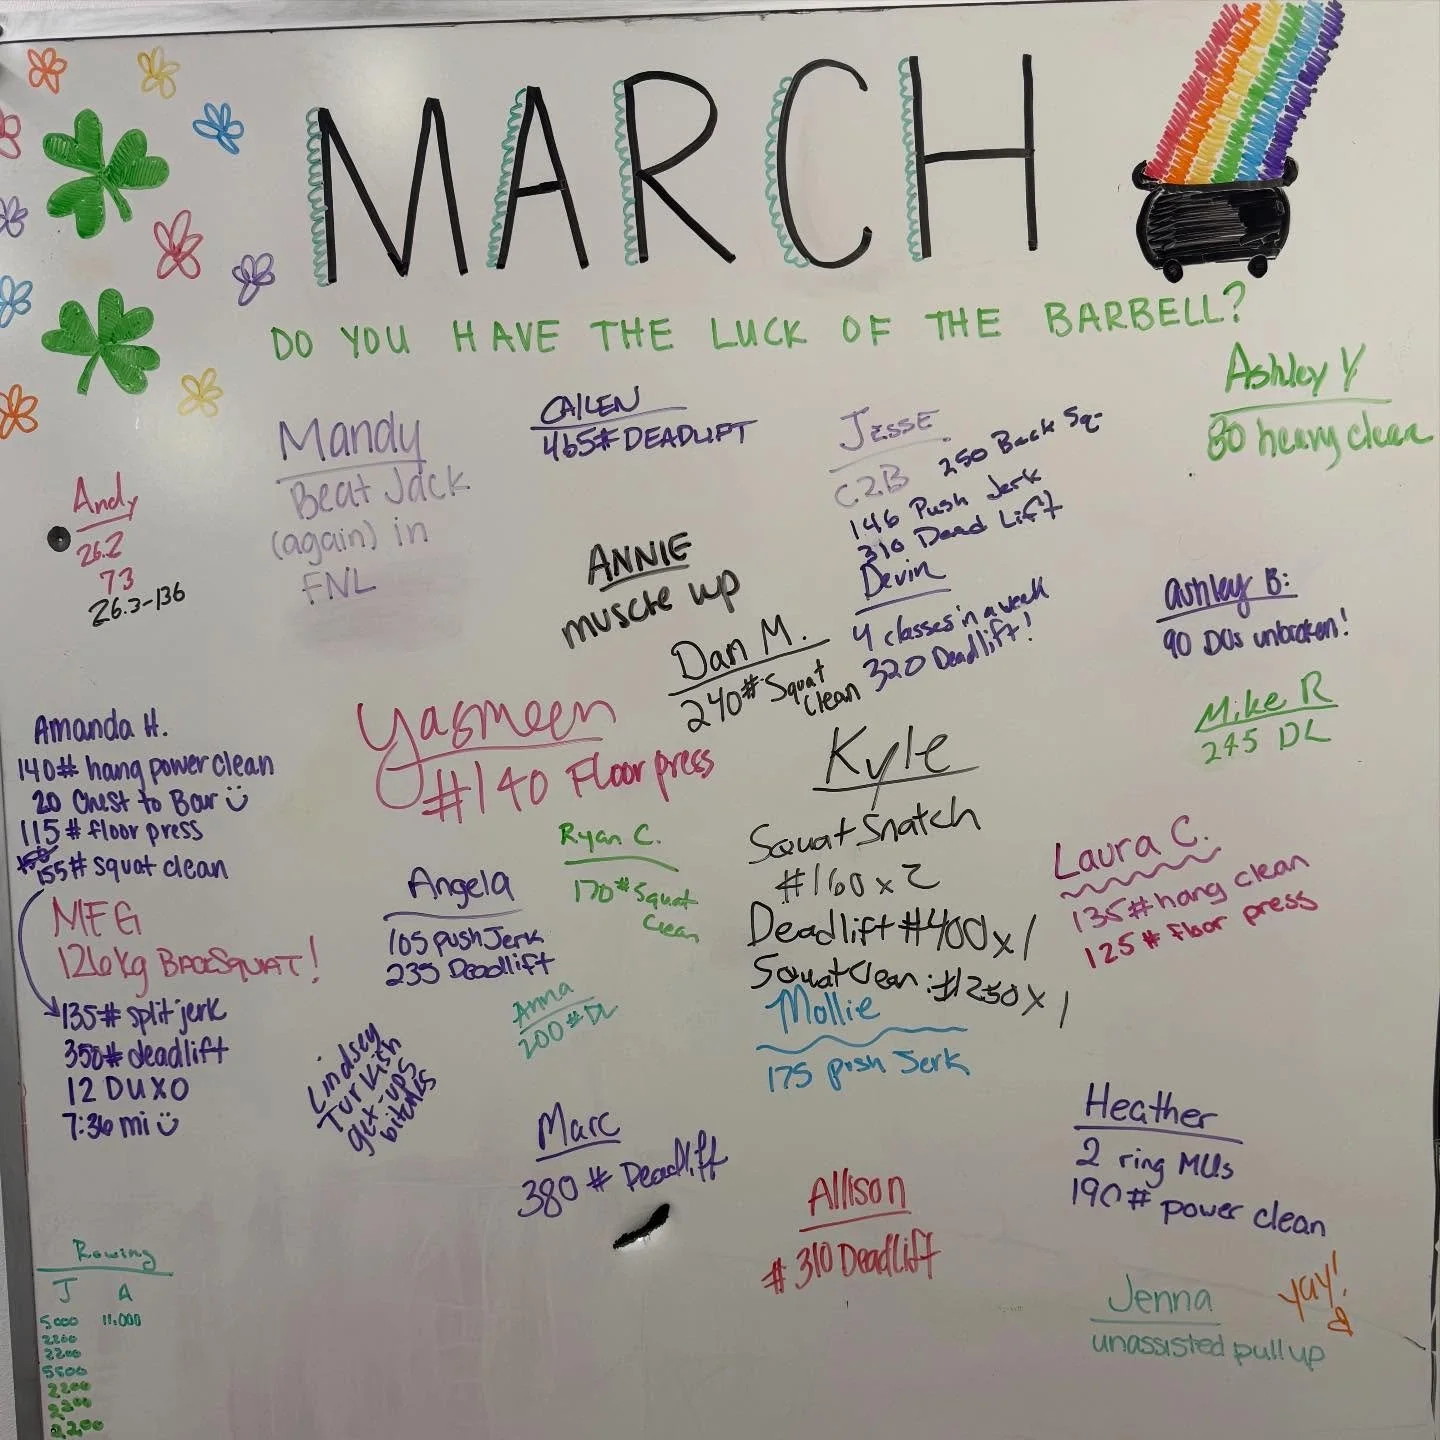 MARCH
DO YOU HAVE THE LUCK OF THE BARBELL?
Andy
26.2
73
26.3-136
Mandy
Beat Jack
(again) in
FNL
CAILEN
465# DEADLIFT
JESSE
C2B 250 Back Sq-
146 Push Jerk
310 Dead Lift
Ashley Y
80 heavy clean
ANNIE
muscle up
Devin
4 classes in a week
320 Deadlift!
Ashley B:
90 DUs unbroken!
Dan M.
240# Squat
Clean
Mike R
245 DL
Amanda H.
140# hang power clean
20 Chest to Bar
115# floor press
155# squat clean
MEG
126kg BACKSQUAT!
135# split jerk
350# deadlift
12 DUXO
7:36 mi
Yasmeen
#140 Floor press
Ryan C.
170# Squat
Clean
Kyle
Squat Snatch
#160 x 2
Deadlift #400 x 1
Squat Clean: #250 x 1
Laura C.
135# hang clean
125# floor press
Angela
105 push Jerk
235 Deadlift
Anna
200# DL
Mollie
175 push Jerk
Lindsey
Turkish
get-ups
bitches
Marc
380# Deadlift
Allison
#310 Deadlift
Heather
2 ring MUs
190# power clean
Jenna
unassisted pull up
yay!
Rowing
J A
5000 11,000
2200
2200
5500
2200
2200
2,200